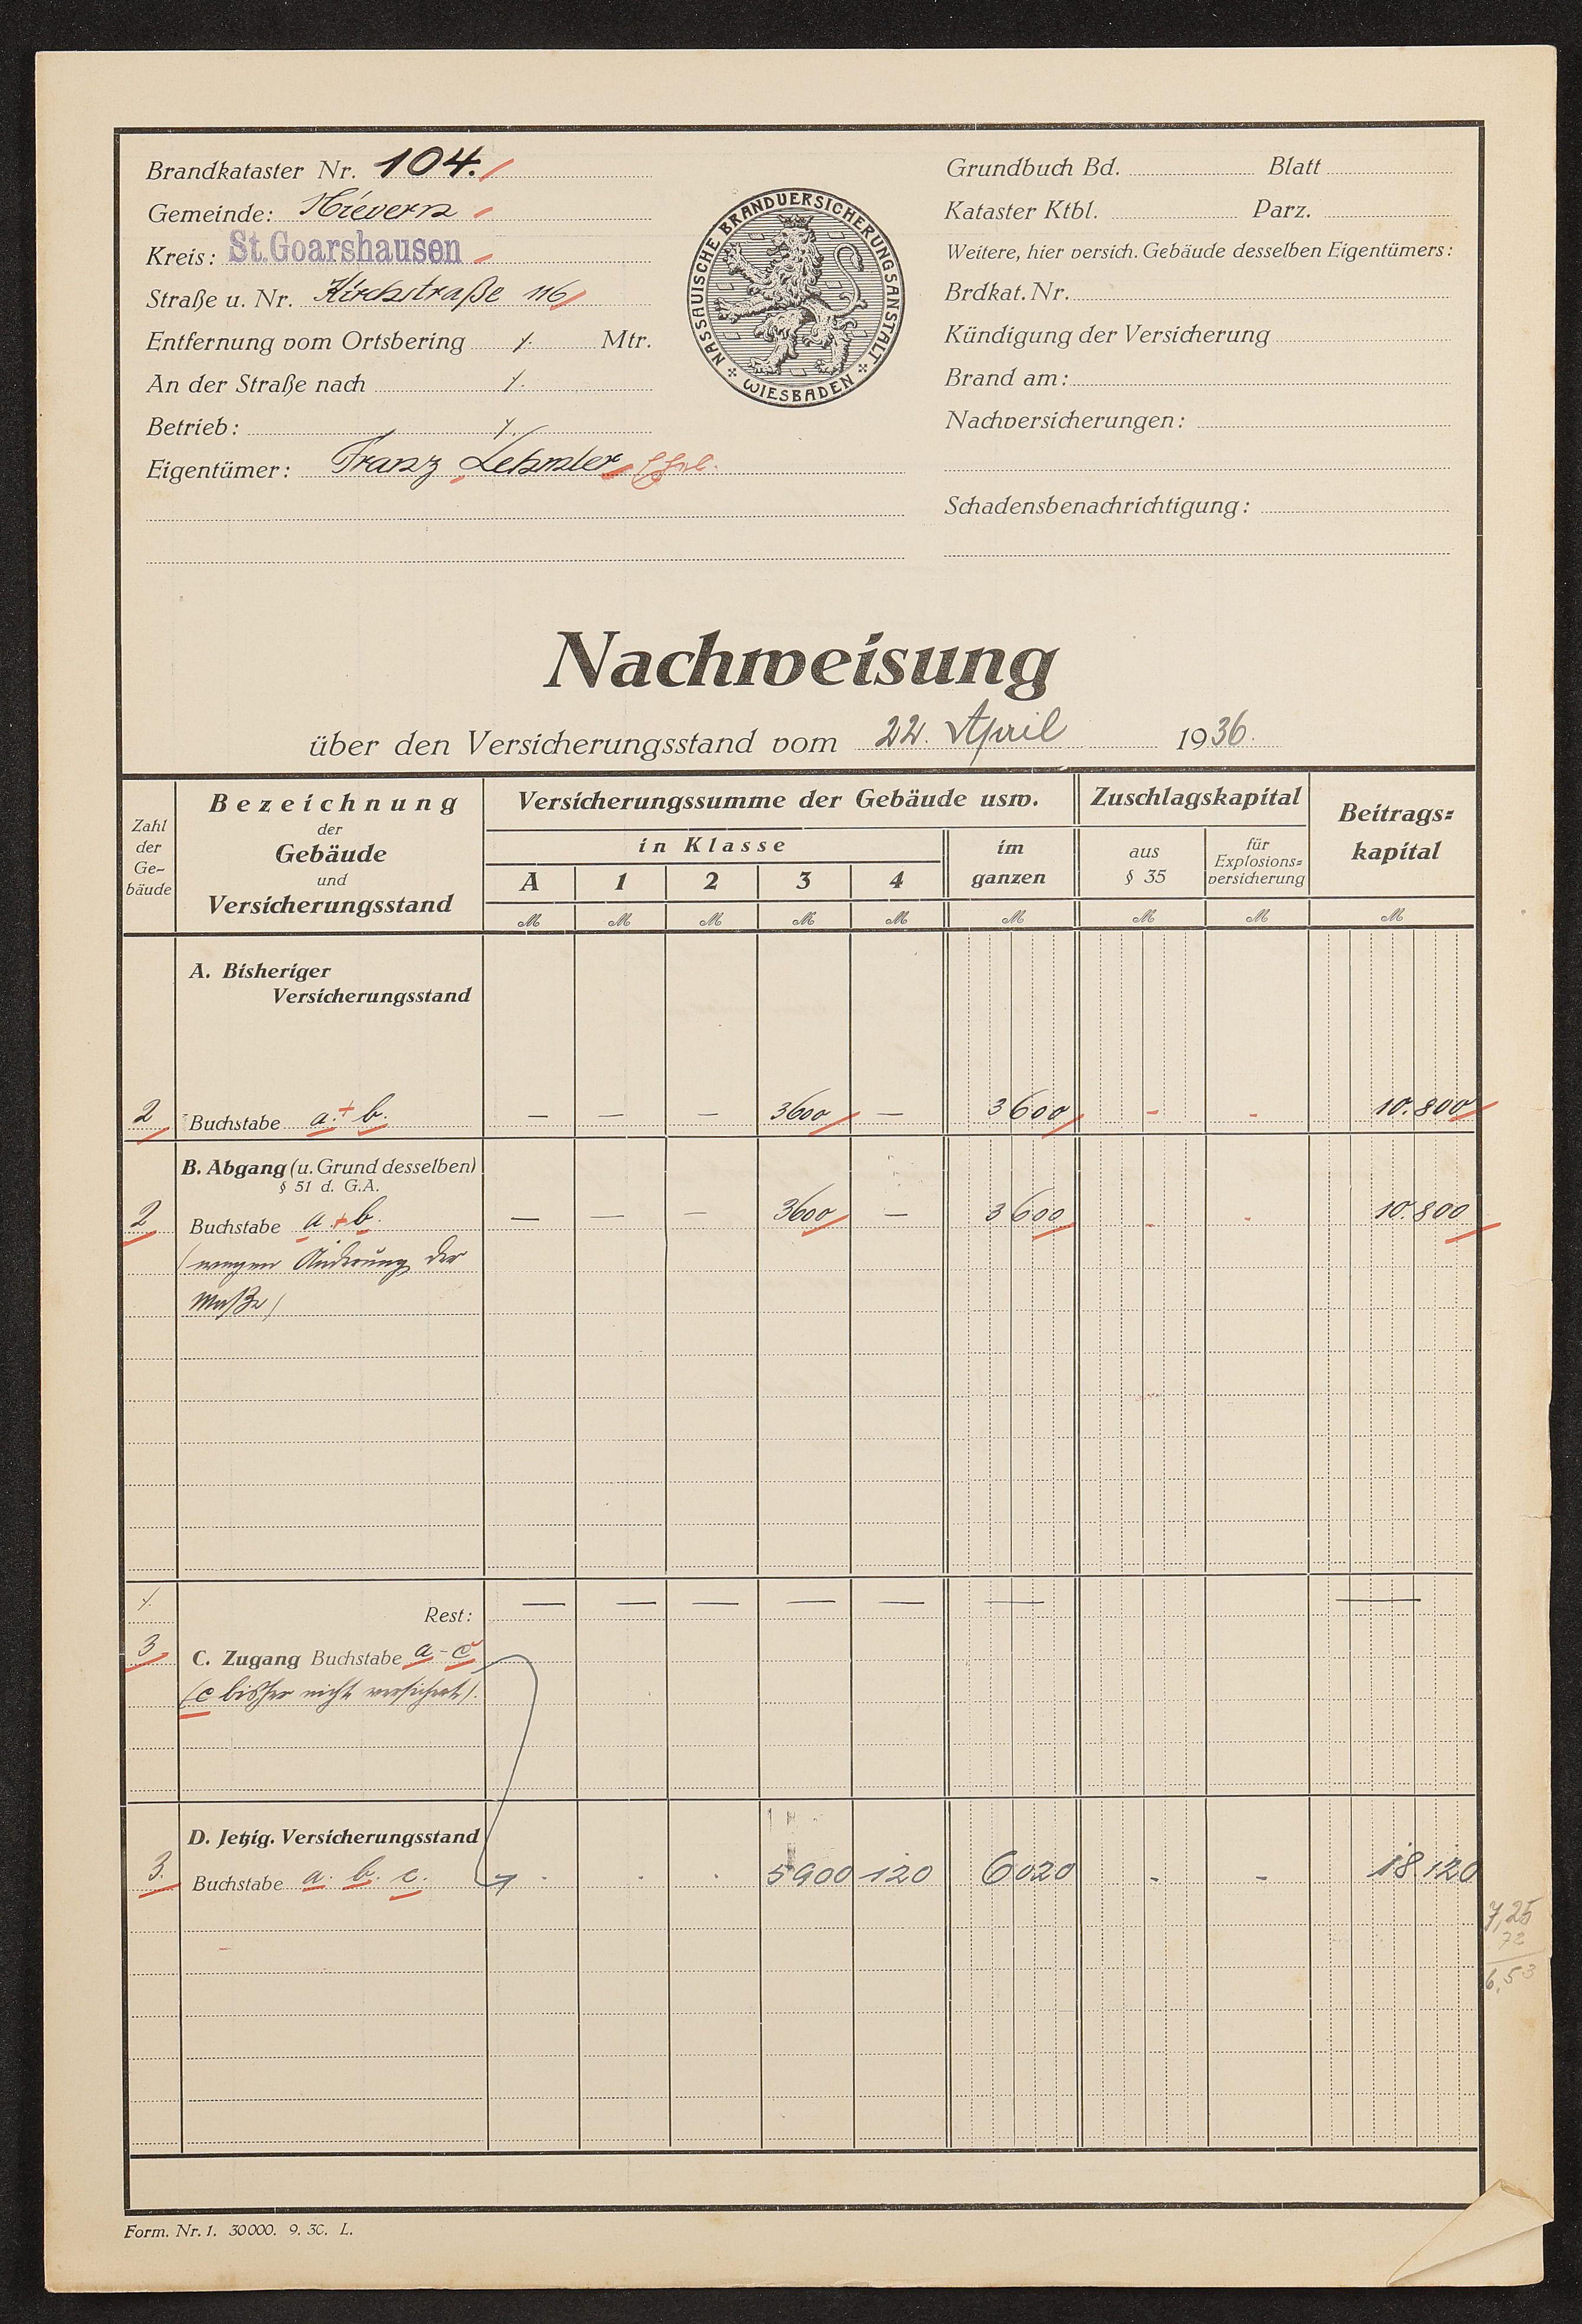 Brandkataster Nr. 104.
Gemeinde: Nievern
Kreis: St. Goarshausen
Straße u. Nr. Kirchstraße 116
Entfernung vom Ortsbering Mtr.
An der Straße nach
Betrieb:
Eigentümer: Franz Lehmler
NASSAUISCHE BRANDVERSICHERUNGSANSTALT
WIESBADEN
Grundbuch Bd. Blatt
Kataster Ktbl. Parz.
Weitere, hier versich. Gebäude desselben Eigentümers:
Brdkat. Nr.
Kündigung der Versicherung
Brand am:
Nachversicherungen:
Schadensbenachrichtigung:
Nachweisung
über den Versicherungsstand vom 22. April 1936.
Zahl der Ge-bäude
Bezeichnung der Gebäude und Versicherungsstand
Versicherungssumme der Gebäude usw.
in Klasse
A 1 2 3 4
im ganzen
Zuschlagskapital
aus § 35
für Explosions=versicherung
Beitrags=kapital
M M M M M M M M M
A. Bisheriger
Versicherungsstand
2 Buchstabe a. + b. — — — 3600 — 3600 - - 10.800
B. Abgang (u. Grund desselben)
§ 51 d. G.A.
2 Buchstabe a + b. — — — 3600 — 3600 - - 10.800
(wegen Änderung der
Maße)
Rest: — — — — — — —
3 C. Zugang Buchstabe a - c
(c bisher nicht versichert).
D. Jetzig. Versicherungsstand
3. Buchstabe a. b. c. 5900 120 6020 - - 18.120
7,25
72
6,53
Form. Nr. 1. 30000. 9. 30. L.